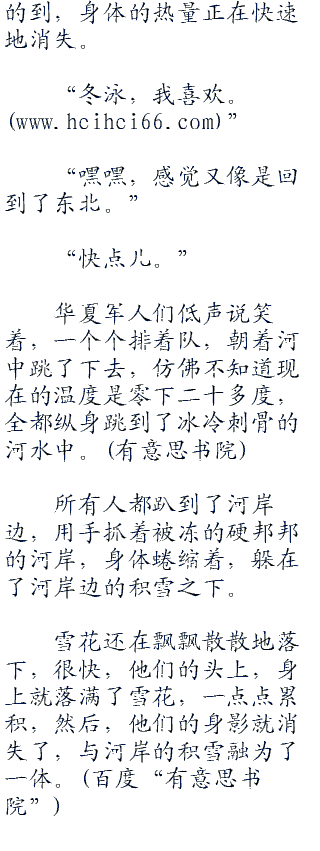 的到，身体的热量正在快速
地消失。
“冬泳，我喜欢。
(www.hcihci66.com)”
“嘿嘿，感觉又像是回
到了东北。”
“快点儿。”
华夏军人们低声说笑
着，一个个排着队，朝着河
中跳了下去，仿佛不知道现
在的温度是零下二十多度，
全都纵身跳到了冰冷刺骨的
河水中。(有意思书院)
所有人都趴到了河岸
边，用手抓着被冻的硬邦邦
的河岸，身体蜷缩着，躲在
了河岸边的积雪之下。
雪花还在飘飘散散地落
下，很快，他们的头上，身
上就落满了雪花，一点点累
积，然后，他们的身影就消
失了，与河岸的积雪融为了
一体。(百度“有意思书
院”)